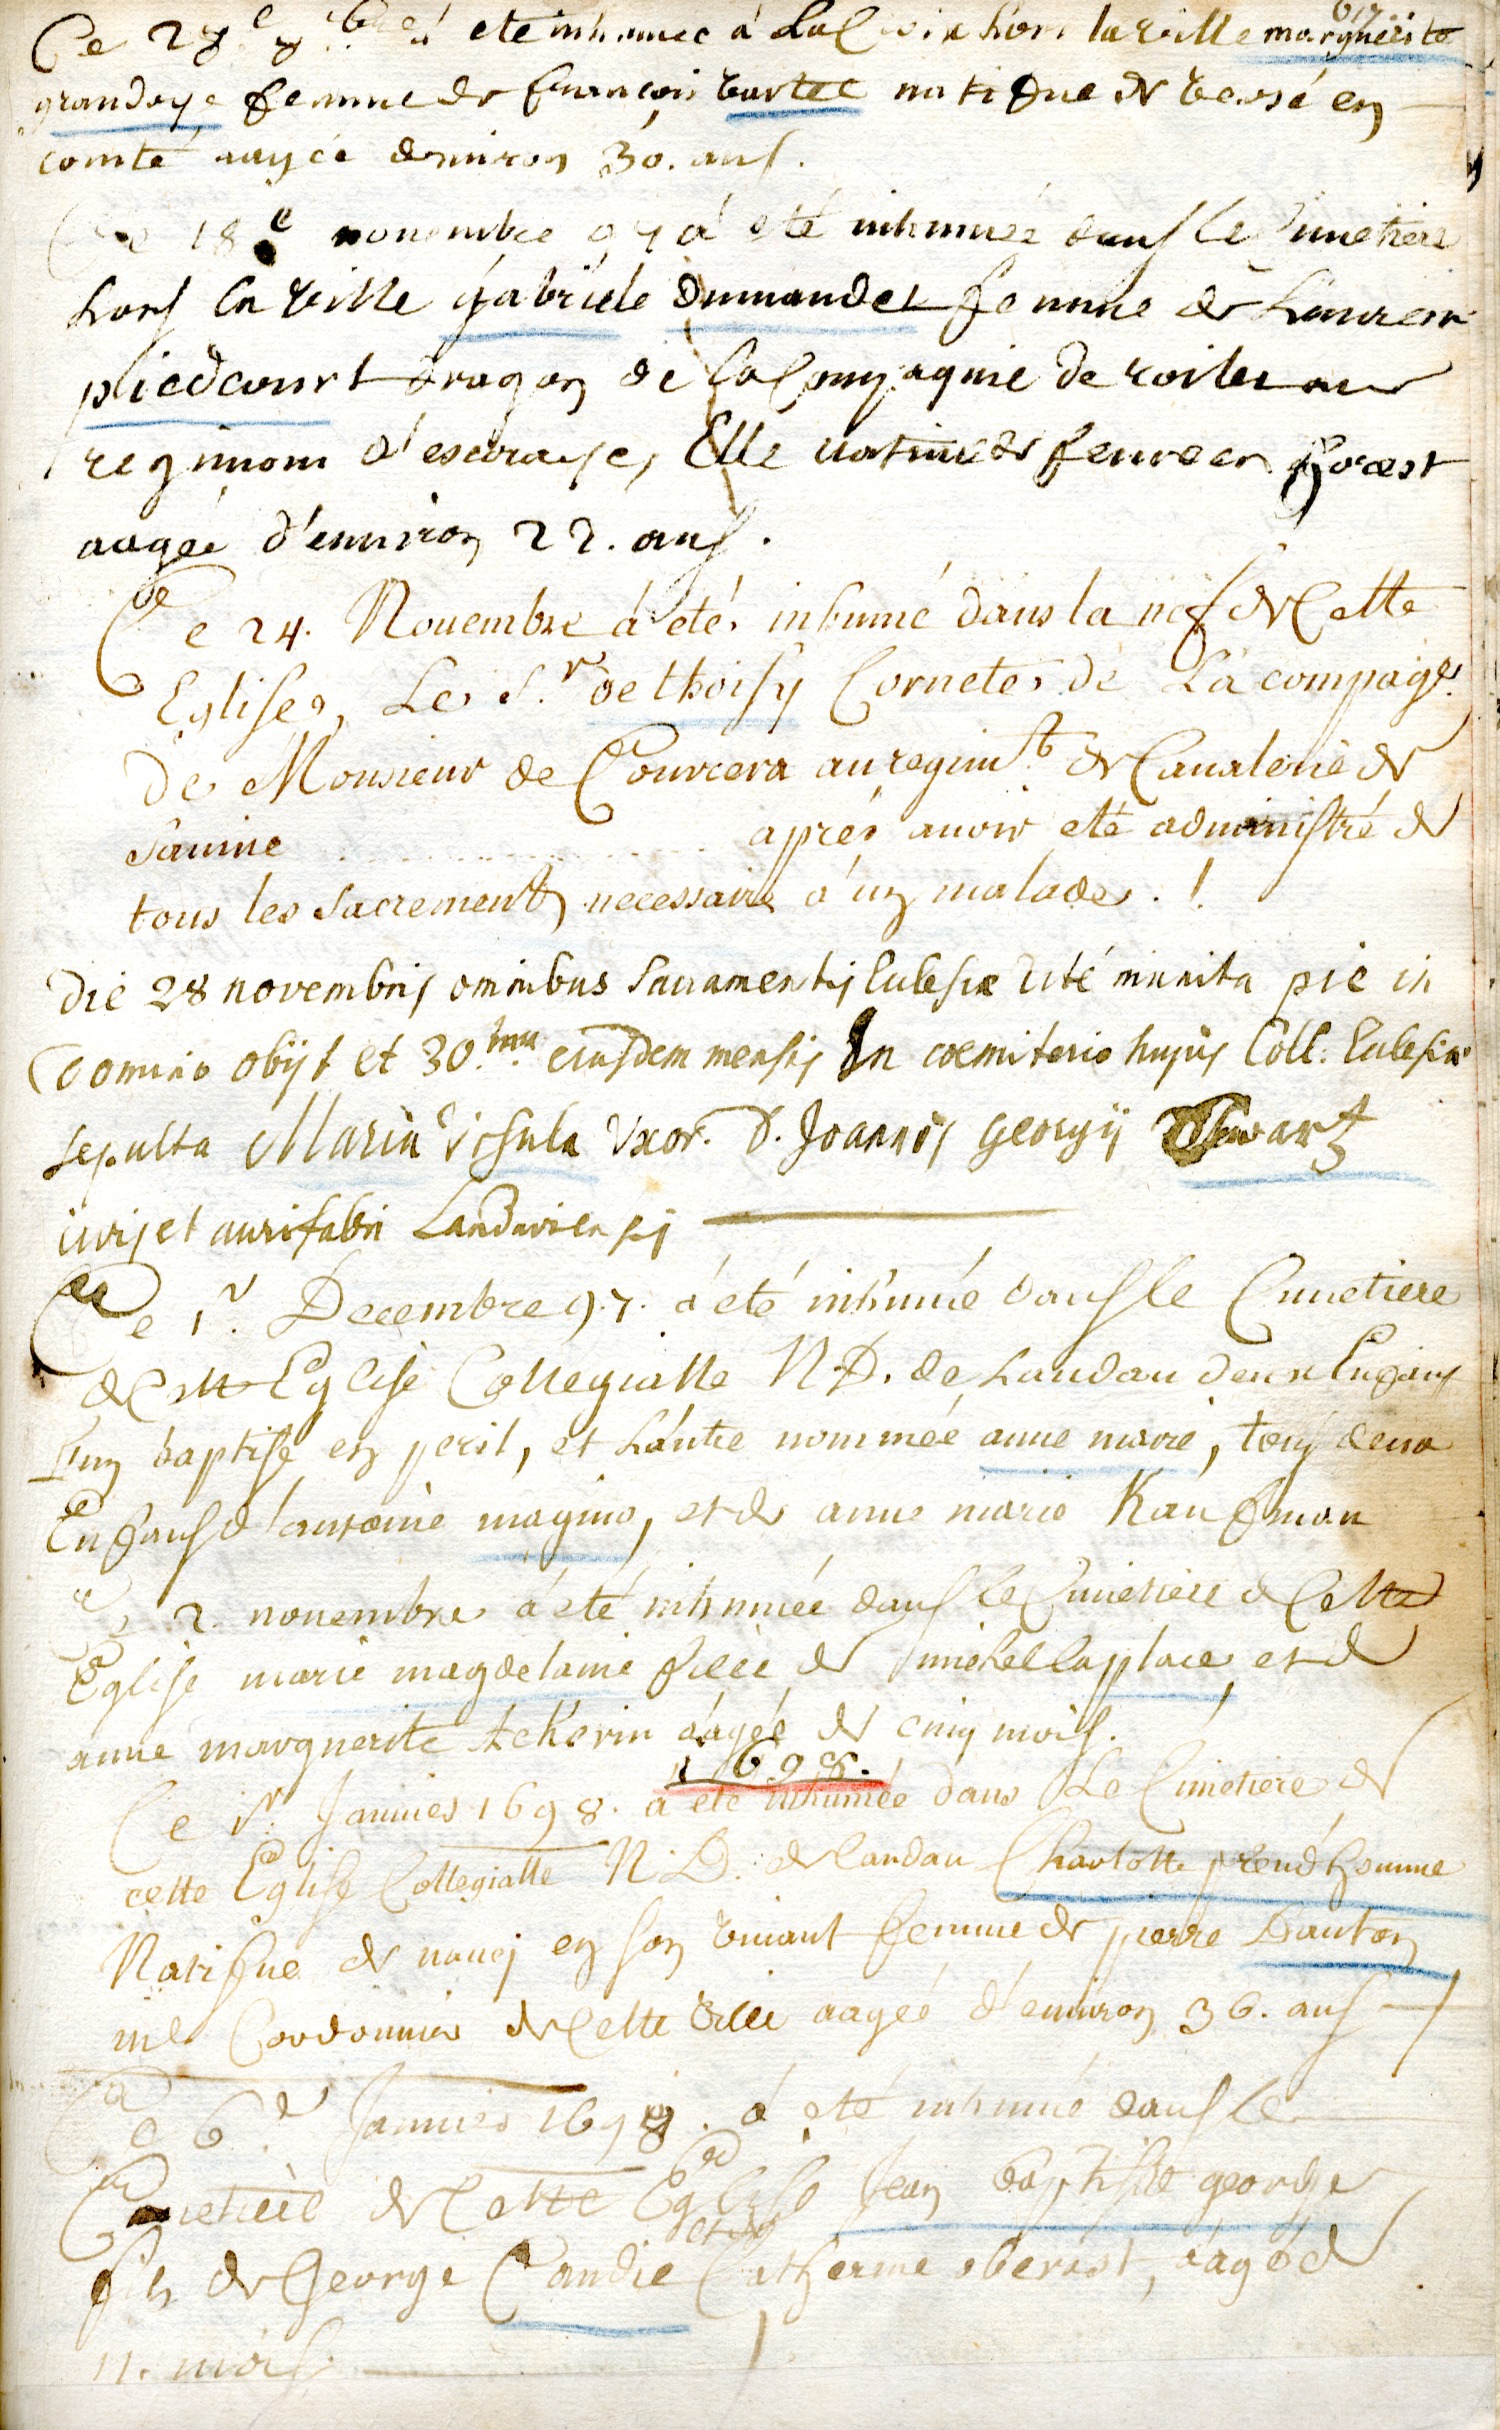 Ce 28e 8bre à eté inhumée à La Croix hors la ville marguerite
grandoye femme de françois tartee natifue de en
comté aagée denviron 30. ans.
Ce 18e nouembre 97 à eté inhumée dans le Cimetiere
hors la ville gabriele dumandet femme de Laurein
piedcourt dragon de la Compagnie de au
regimom d'escoraye, Elle natiue de feure en forest
aagée d'enuiron 22. ans.
Ce 24. Nouembre à eté inhumé dans la nef de Cette
Eglise, Le Sr. de thoisy Cornete de La compage.
De Monsieur de Courcera au regimt. de Caualerie de
Sauine ........ aprés auoir eté administré de
tous les Sacrements necessaire à un malade.
Die 28 novembris omnibus Sacramentis Eclesiæ rité munita pie in
Domino obijt et 30.ma eiusdem mensis In coemiterio hujus Coll. Eclesiæ
sepulta Maria Ursula Uxor. D. Joannis Georgij Schwartz
civis et aurifabri Landaviensis
Ce 1r. Decembre 97. à été inhumé dans le Cimetiere
de cette Eglise Collegialle N.D. de Landau deux Enfans
L'un baptisé en peril, et L'autre nommée anne marie, tous deux
Enfans d'antoine magino, et de anne marie Kaufman
Ce 2. nouembre à eté inhumée dans le Cimetiere de Cette
Eglise marie magdelaine fille de michel laplace et de
anne marguerite Ackerin aagée de cinq mois.
1698.
Ce 1r. Januier 1698. à eté inhumée dans Le Cimetiere de
cette Eglise Collegialle N.D. de landau Charlotte preud'homme
Natifue de nancj en son viuant femme de pierre Danton
me Cordonnier de Cette ville aagée d'enuiron 36. ans
Ce 6.e Januier 1698. à eté inhumé dans le
Cimetiere de Cette Eglise Jean baptiste george
fils de George Candie et de Catherine oberist, aagé de
11. mois